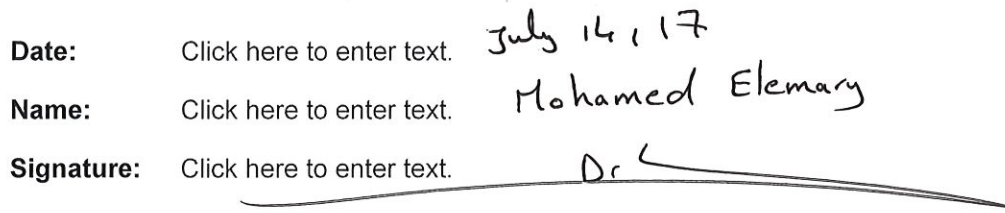 Date: Click here to enter text. July 14, 17
Name: Click here to enter text. Mohamed Elemary
Signature: Click here to enter text. Dr